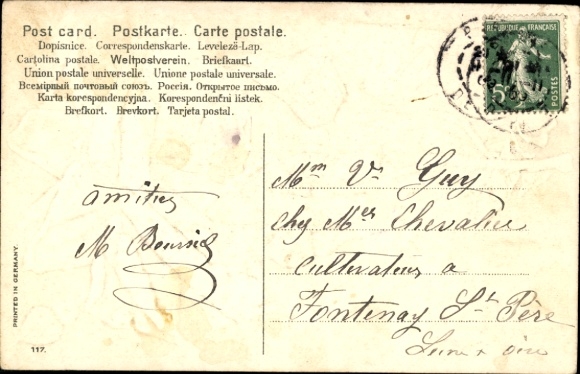 Post card. Postkarte. Carte postale.
Dopisnice. Correspondenskarte. Levelező-Lap.
Cartolina postale. Weltpostverein. Briefkaart.
Union postale universelle. Unione postale universale.
Всемірный почтовый союзъ. Россія. Открытое письмо.
Karta korespondencyjna. Korespondenční listek.
Brefkort. Brevkort. Tarjeta postal.
RÉPUBLIQUE FRANÇAISE
5c POSTES
amitiés
M Boursie
Mm Ve Guy
chez Mr Chevalier
cultivateur a
Fontenay St Père
Seine & oise
PRINTED IN GERMANY.
117.